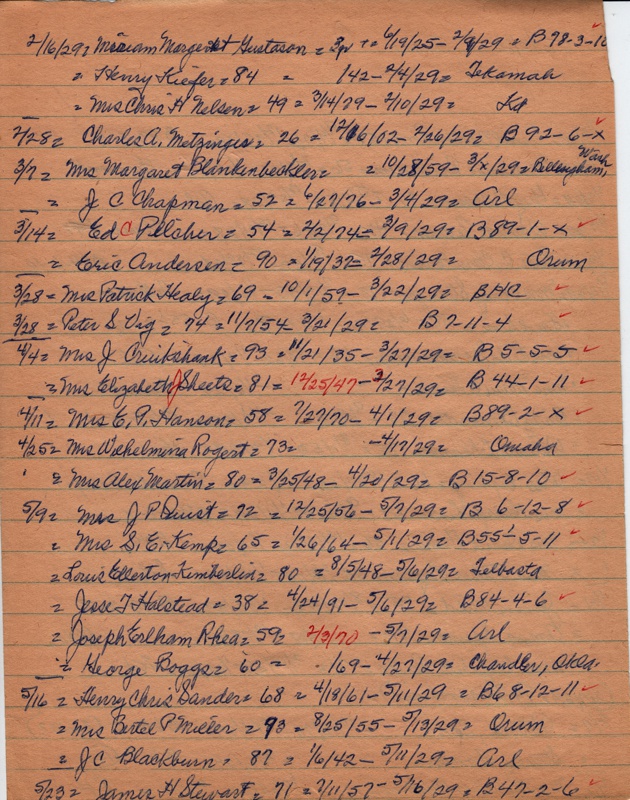 2/16/29 = Miriam Margeret Gustason = 3 + = 6/19/25 - 2/9/29 = B 78-3-10
= Henry Kiefer = 84 = 142 - 2/4/29 = Tekamah
= Mrs Chris H Nelsen = 49 = 3/14/79 - 2/10/29 =
2/28 = Charles A. Metzinger = 26 = 12/16/02 - 2/26/29 = B 92-6-X
3/7 = Mrs. Margaret Blankenbeckler = = 10/28/59 - 3/X/29 = Bellengham, Wash
= J C Chapman = 52 = 6/27/76 - 3/4/29 = Arl
3/14 = Ed C Pilcher = 54 = 2/2/74 = 3/9/29 = B89-1-X
= Eric Andersen = 90 = 1/19/37 = 2/28/29 = Orum
3/28 = Mrs Patrick Healy = 69 - 10/1/59 - 3/22/29 = BHC
3/28 = Peter S Vig = 74 = 11/7/54 - 3/21/29 = B 7-11-4
4/4 = Mrs J. Cruikshank = 93 = 11/21/35 - 3/27/29 = B 5-5-5
= Mrs Elizabeth J Sheets = 81 = 12/25/47 - 3/27/29 = B 44-1-11
4/11 = Mrs E. P. Hanson = 58 = 7/27/70 - 4/1/29 = B89-2-X
4/25 = Mrs Wilhelmina Rogert = 73 = - 4/17/29 = Omaha
= Mrs Alex Martin = 80 = 3/25/48 - 4/20/29 = B 15-8-10
5/9 = Mrs J P Quist = 72 = 12/25/56 - 5/7/29 = B 6-12-8
= Mrs S. E. Kemp = 65 = 1/26/64 - 5/1/29 = B55-5-11
= Louis Ellerton Kimberlin = 80 = 8/5/48 - 5/6/29 = Telbasta
= Jesse T Halstead = 38 = 4/24/91 - 5/6/29 = B84-4-6
= Joseph Erlham Rhea = 59 = 2/3/70 - 5/7/29 = Arl
= George Boggs = 60 = 169 - 4/27/29 = Chandler, Okla.
5/16 = Henry Chris Sander = 68 = 4/18/61 - 5/11/29 = B68-12-11
= Mrs Bertel P Miller = 73 = 8/25/55 - 5/13/29 = Orum
= J C Blackburn = 87 = 1/6/42 - 5/11/29 = Arl
5/23 = James H Stewart = 71 = 7/11/57 - 5/16/29 = B47-2-6